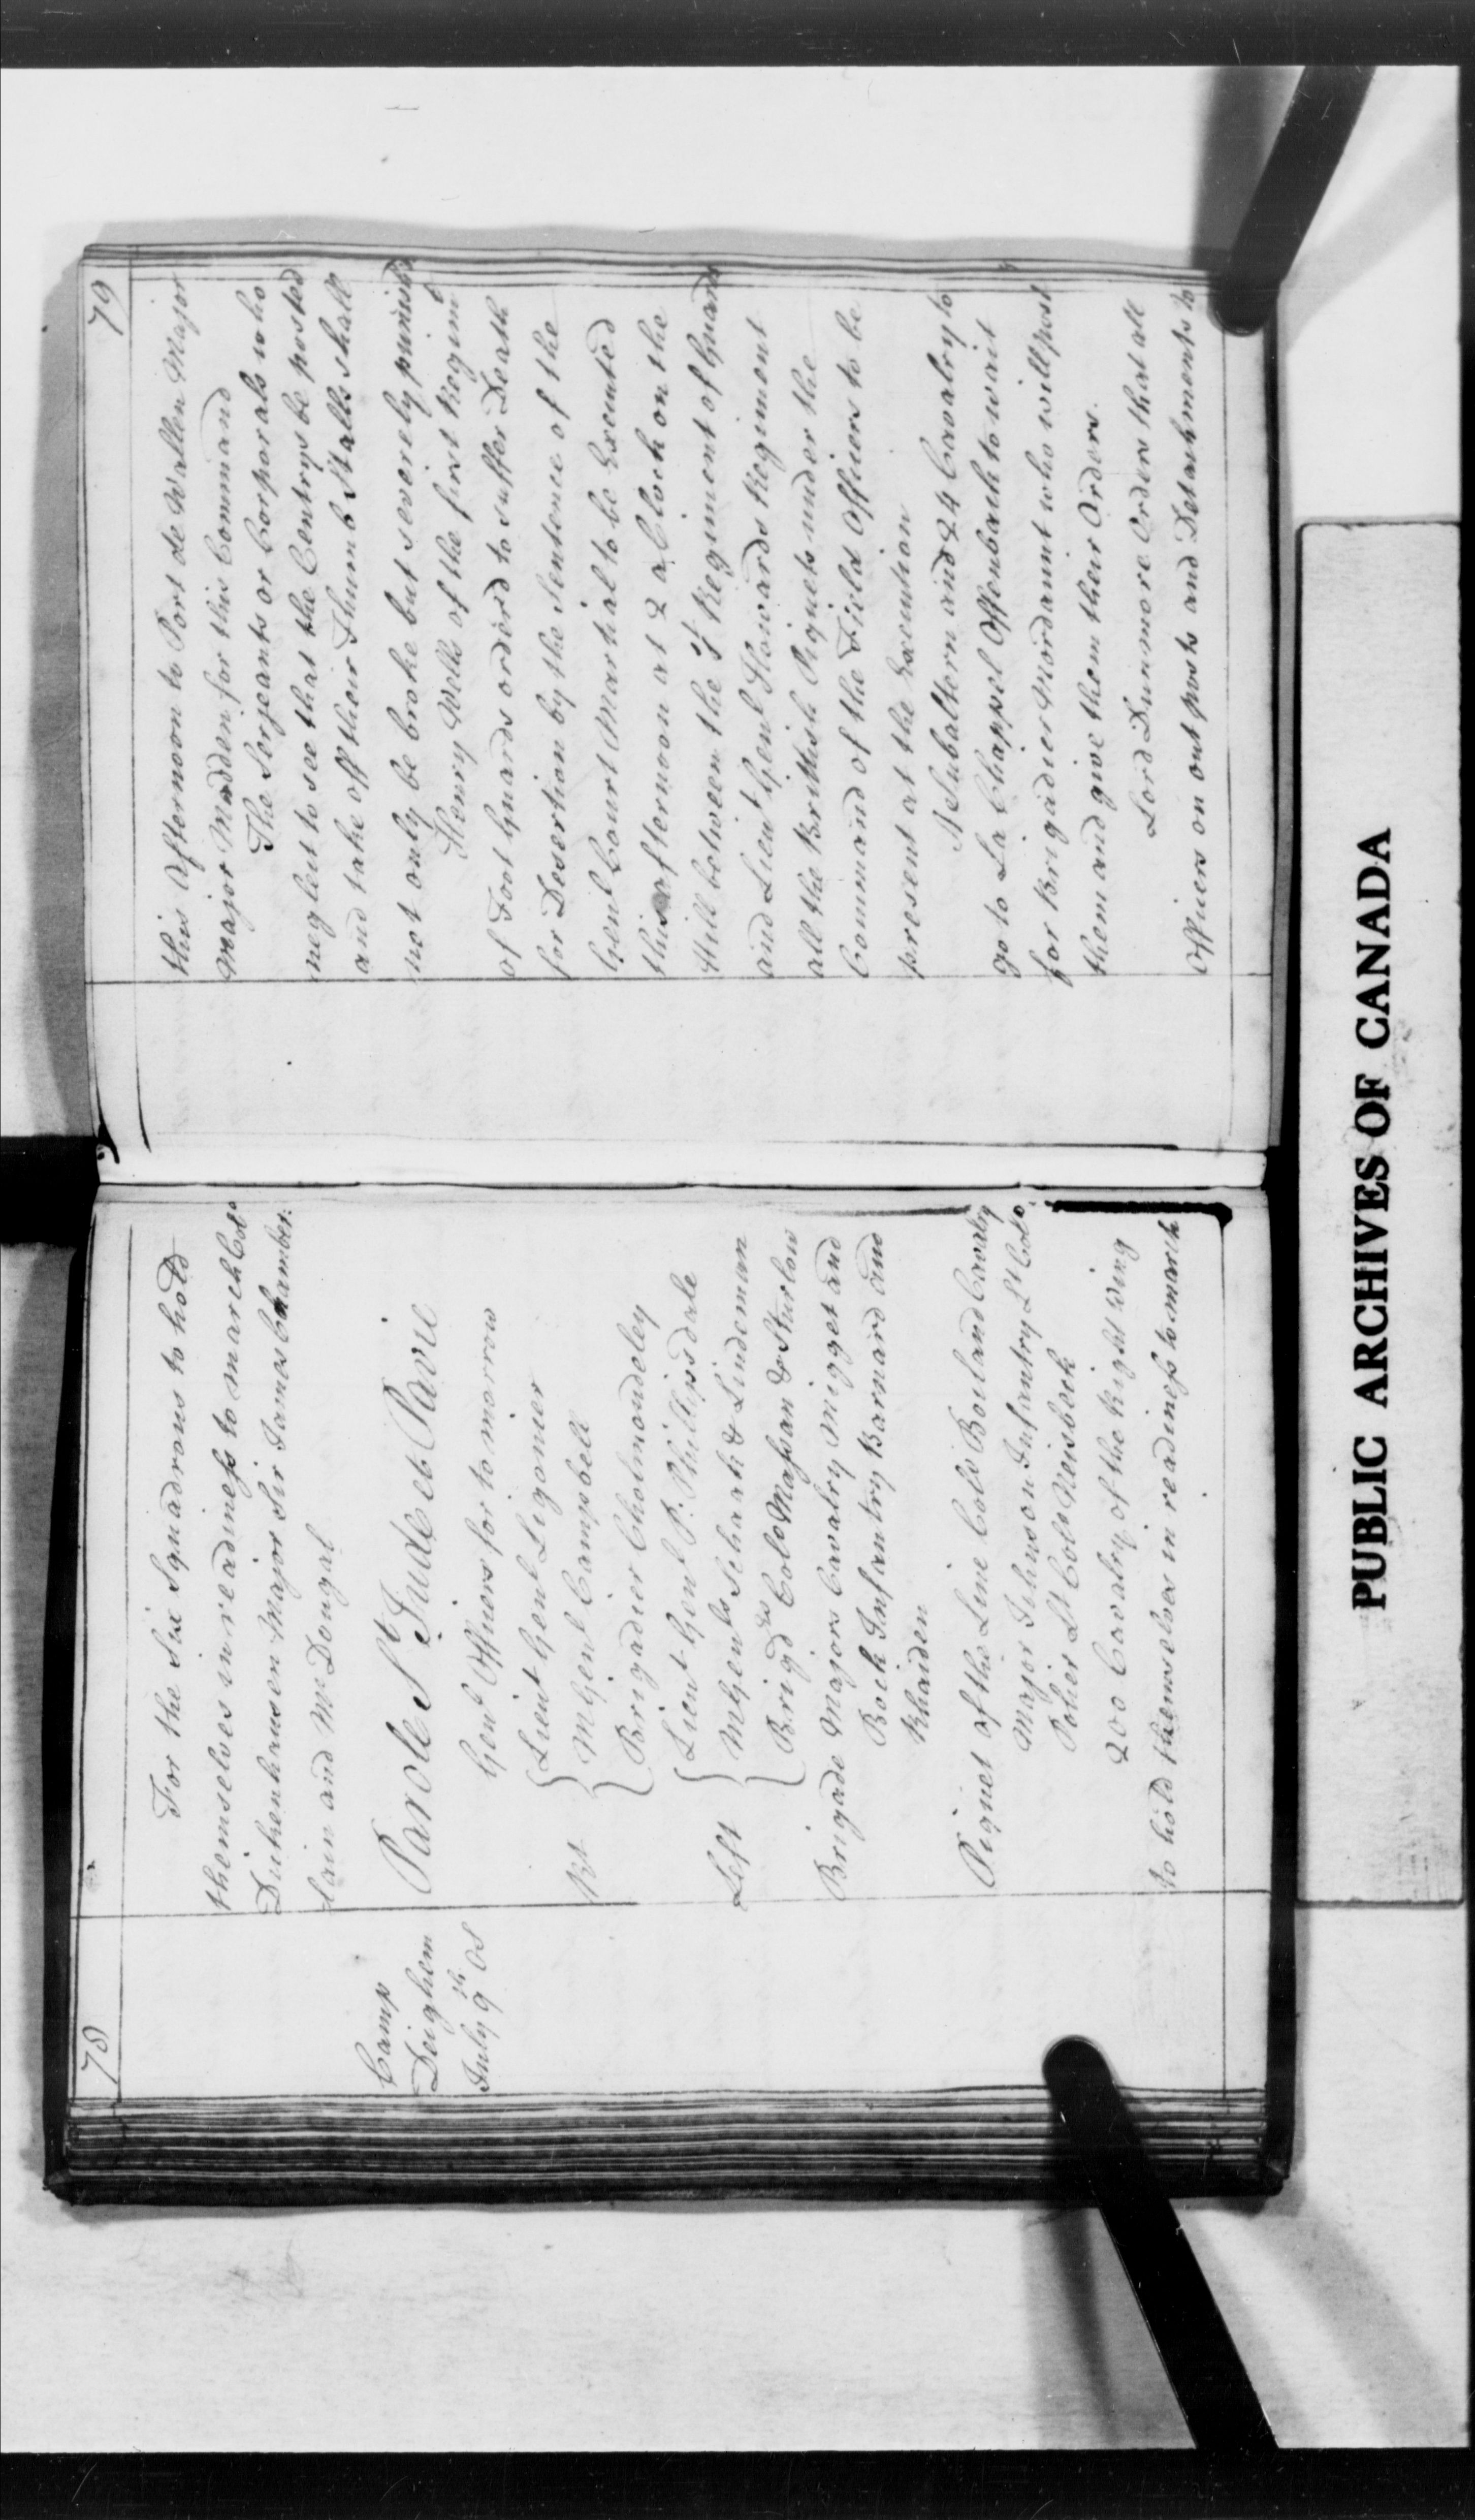 78
For the Six Squadrons to hold
themselves in readiness to march Colo
Duckenhausen Major Sir James Chamber:
lain and McDougal
Camp
Deighem
July 9th OS
Parole St Jude et Pavie
Genl Officers for to morrow
Rt
Lieut Genl Ligonier
M Genl Campbell
Brigadier Cholmondeley
Left
Lieut Genl P. Phillipsdale
M Genls Schaak & Lindeman
Brigdrs Colo Massan & Sturlow
Brigade Majors Cavalry Migget and
Bock Infantry Barnard and
Rhaiden
Piquet of the Line Colo Bouland Cavalry
Major Johnson Infantry Lt Colo
Polier Lt Colo Neisbeck
200 Cavalry of the Right Wing
to hold themselves in readiness to march
79
this Afternoon to Port de Wallen Major
Major Madden for this Command
The Serjeants or Corporals who
neglect to see that the Centrys be posted
and take off their Thumb Stalls shall
not only be broke but severely punish'd
Henry Wells of the first Regimt
of Foot Guards order'd to suffer Death
for Desertion by the Sentence of the
Genl Court Martial to be Executed
this afternoon at 2 a Clock on the
Hill between the 3d Regiment of Guards
and Lieut Genl Howards Regiment
all the Brittish Piquets under the
Command of the Field Officers to be
present at the Execution
A Subaltern and 24 Cavalry to
go to La Chappel Offenback to wait
for Brigadier Mordaunt who will post
them and give them their Orders.
Lord Dunmore Orders that all
Officers on out posts and Detachments to
PUBLIC ARCHIVES OF CANADA